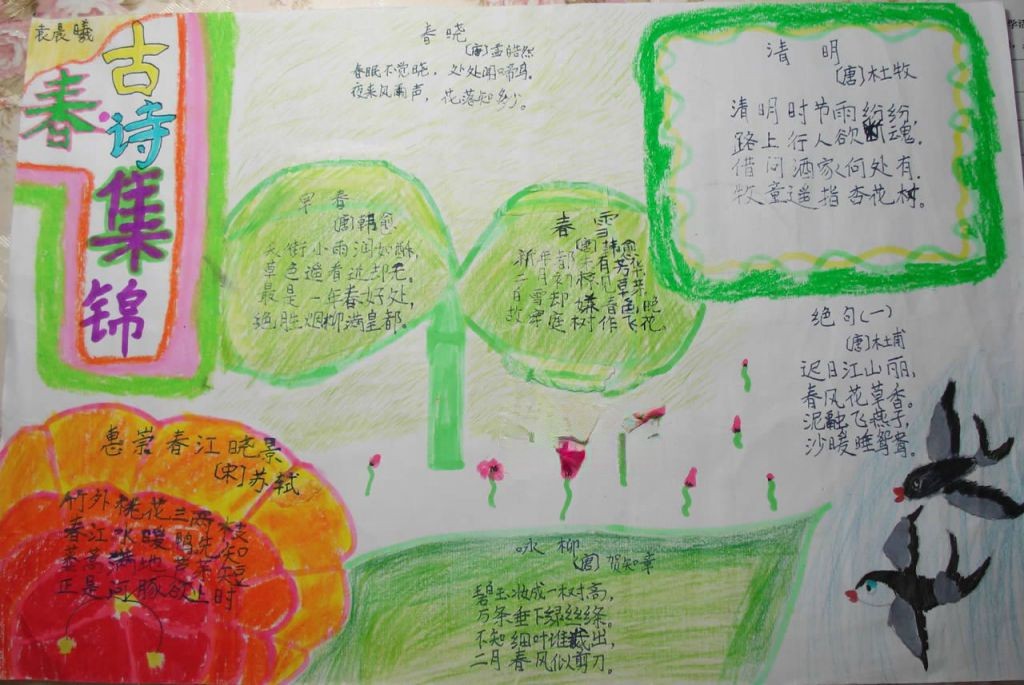 袁晨曦
春
古诗集锦
春晓
(唐)孟皓然
春眠不觉晓，处处闻啼鸟。
夜来风雨声，花落知多少。
清明
(唐)杜牧
清明时节雨纷纷，
路上行人欲断魂。
借问酒家何处有，
牧童遥指杏花村。
早春
(唐)韩愈
天街小雨润如酥，
草色遥看近却无。
最是一年春好处，
绝胜烟柳满皇都。
春雪
(唐)韩愈
新年都未有芳华，
二月初惊见草芽。
白雪却嫌春色晚，
故穿庭树作飞花。
绝句(一)
(唐)杜甫
迟日江山丽，
春风花草香。
泥融飞燕子，
沙暖睡鸳鸯。
惠崇春江晓景
(宋)苏轼
竹外桃花三两枝
春江水暖鸭先知
蒌蒿满地芦芽短
正是河豚欲上时
咏柳
(唐)贺知章
碧玉妆成一树高，
万条垂下绿丝绦。
不知细叶谁裁出，
二月春风似剪刀。